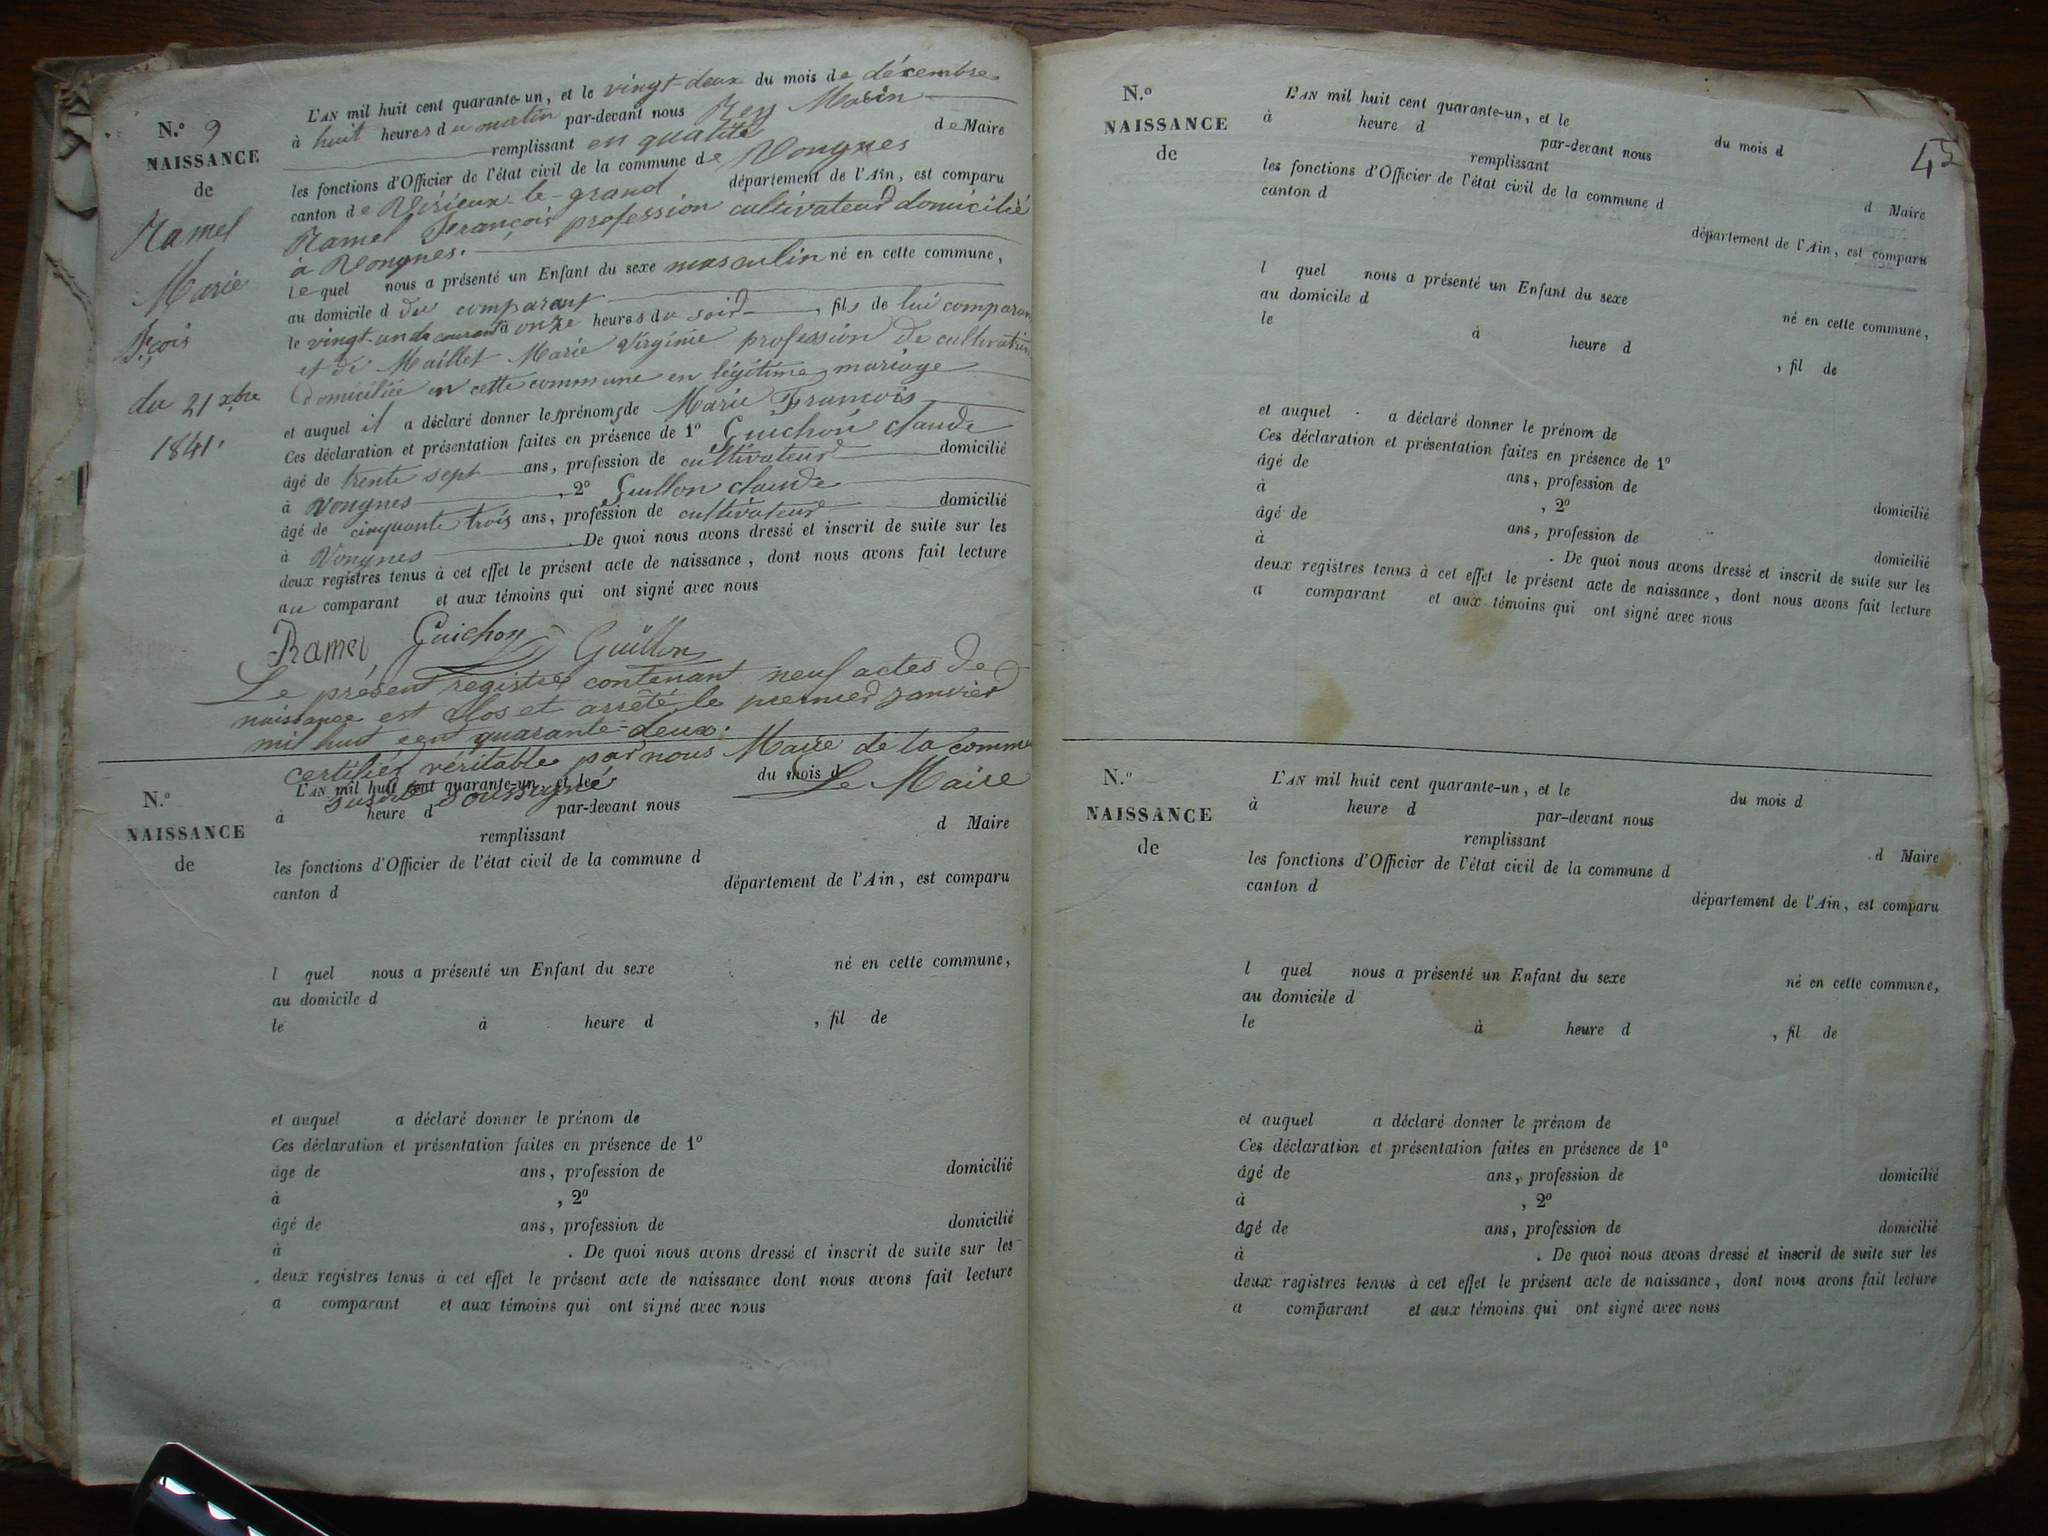 N.º 9
NAISSANCE
de
Ramel
Marie
Fçois
du 21 xbre
1841.
L'AN mil huit cent quarante-un, et le vingt-deux du mois de décembre
à huit heures du matin par-devant nous Rey Marin
remplissant en qualité de Maire
les fonctions d'Officier de l'état civil de la commune de Vongnes
canton de Virieux-le-grand département de l'Ain, est comparu
Ramel François profession cultivateur domicilié
à Vongnes.
lequel nous a présenté un Enfant du sexe masculin né en cette commune,
au domicile d du comparant
le vingt-un du courant à onze heures du soir, fils de lui comparant
et de Maillet Marie Virginie profession de cultivatrice
domiciliée en cette commune en légitime mariage
et auquel il a déclaré donner les prénoms de Marie François
Ces déclaration et présentation faites en présence de 1º Guichon claude
âgé de trente sept ans, profession de cultivateur domicilié
à Vongnes, 2º Guillon claude
âgé de cinquante trois ans, profession de cultivateur domicilié
à Vongnes. De quoi nous avons dressé et inscrit de suite sur les
deux registres tenus à cet effet le présent acte de naissance, dont nous avons fait lecture
au comparant et aux témoins qui ont signé avec nous
Ramel Guichon Guillon
Le présent registre contenant neuf actes de
naissance est clos et arrêté le premier janvier
mil huit cent quarante-deux.
certifié véritable par nous Maire de la commune
soussigné Le Maire
N.º
NAISSANCE
de
L'AN mil huit cent quarante-un, et le du mois d
à heure d par-devant nous
remplissant d Maire
les fonctions d'Officier de l'état civil de la commune d
canton d département de l'Ain, est comparu
l quel nous a présenté un Enfant du sexe né en cette commune,
au domicile d
le à heure d , fil de
et auquel a déclaré donner le prénom de
Ces déclaration et présentation faites en présence de 1º
âge de ans, profession de domicilié
à , 2º
âgé de ans, profession de domicilié
à . De quoi nous avons dressé et inscrit de suite sur les
deux registres tenus à cet effet le présent acte de naissance dont nous avons fait lecture
a comparant et aux témoins qui ont signé avec nous
45
N.º
NAISSANCE
de
L'AN mil huit cent quarante-un, et le du mois d
à heure d par-devant nous
remplissant d Maire
les fonctions d'Officier de l'état civil de la commune d
canton d département de l'Ain, est comparu
l quel nous a présenté un Enfant du sexe né en cette commune,
au domicile d
le à heure d , fil de
et auquel a déclaré donner le prénom de
Ces déclaration et présentation faites en présence de 1º
âgé de ans, profession de domicilié
à , 2º
âgé de ans, profession de domicilié
à . De quoi nous avons dressé et inscrit de suite sur les
deux registres tenus à cet effet le présent acte de naissance, dont nous avons fait lecture
a comparant et aux témoins qui ont signé avec nous
N.º
NAISSANCE
de
L'AN mil huit cent quarante-un, et le du mois d
à heure d par-devant nous
remplissant d Maire
les fonctions d'Officier de l'état civil de la commune d
canton d département de l'Ain, est comparu
l quel nous a présenté un Enfant du sexe né en cette commune,
au domicile d
le à heure d , fil de
et auquel a déclaré donner le prénom de
Ces déclaration et présentation faites en présence de 1º
âgé de ans, profession de domicilié
à , 2º
âgé de ans, profession de domicilié
à . De quoi nous avons dressé et inscrit de suite sur les
deux registres tenus à cet effet le présent acte de naissance, dont nous avons fait lecture
a comparant et aux témoins qui ont signé avec nous